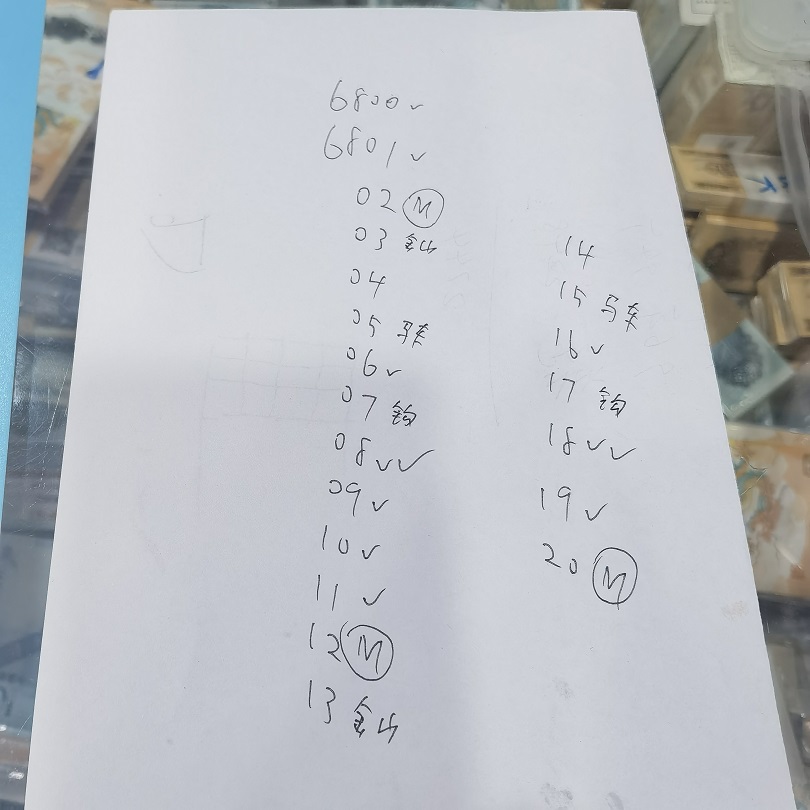 6800 v
6801 v
02 M
03 金山
04
05 马东
06 v
07 钩
08 v v
09 v
10 v
11 v
12 M
13 金山
14
15 马东
16 v
17 钩
18 v v
19 v
20 M